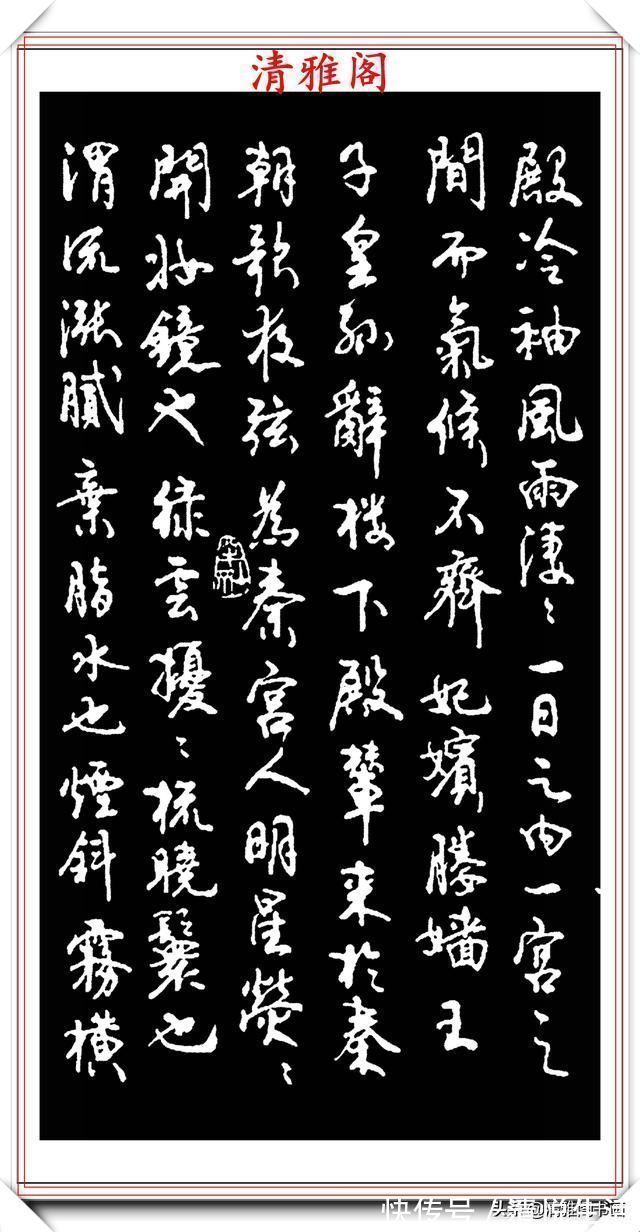 清雅阁
殿冷袖風雨淒〻一日之内一宫之
間而氣候不齊妃嬪媵嬙王
子皇孫辭楼下殿輦来於秦
朝歌夜弦為秦宫人明星熒〻
開妝鏡也绿雲擾〻梳曉鬟也
渭流漲膩棄脂水也煙斜霧橫
快传号
头条@清雅阁书画